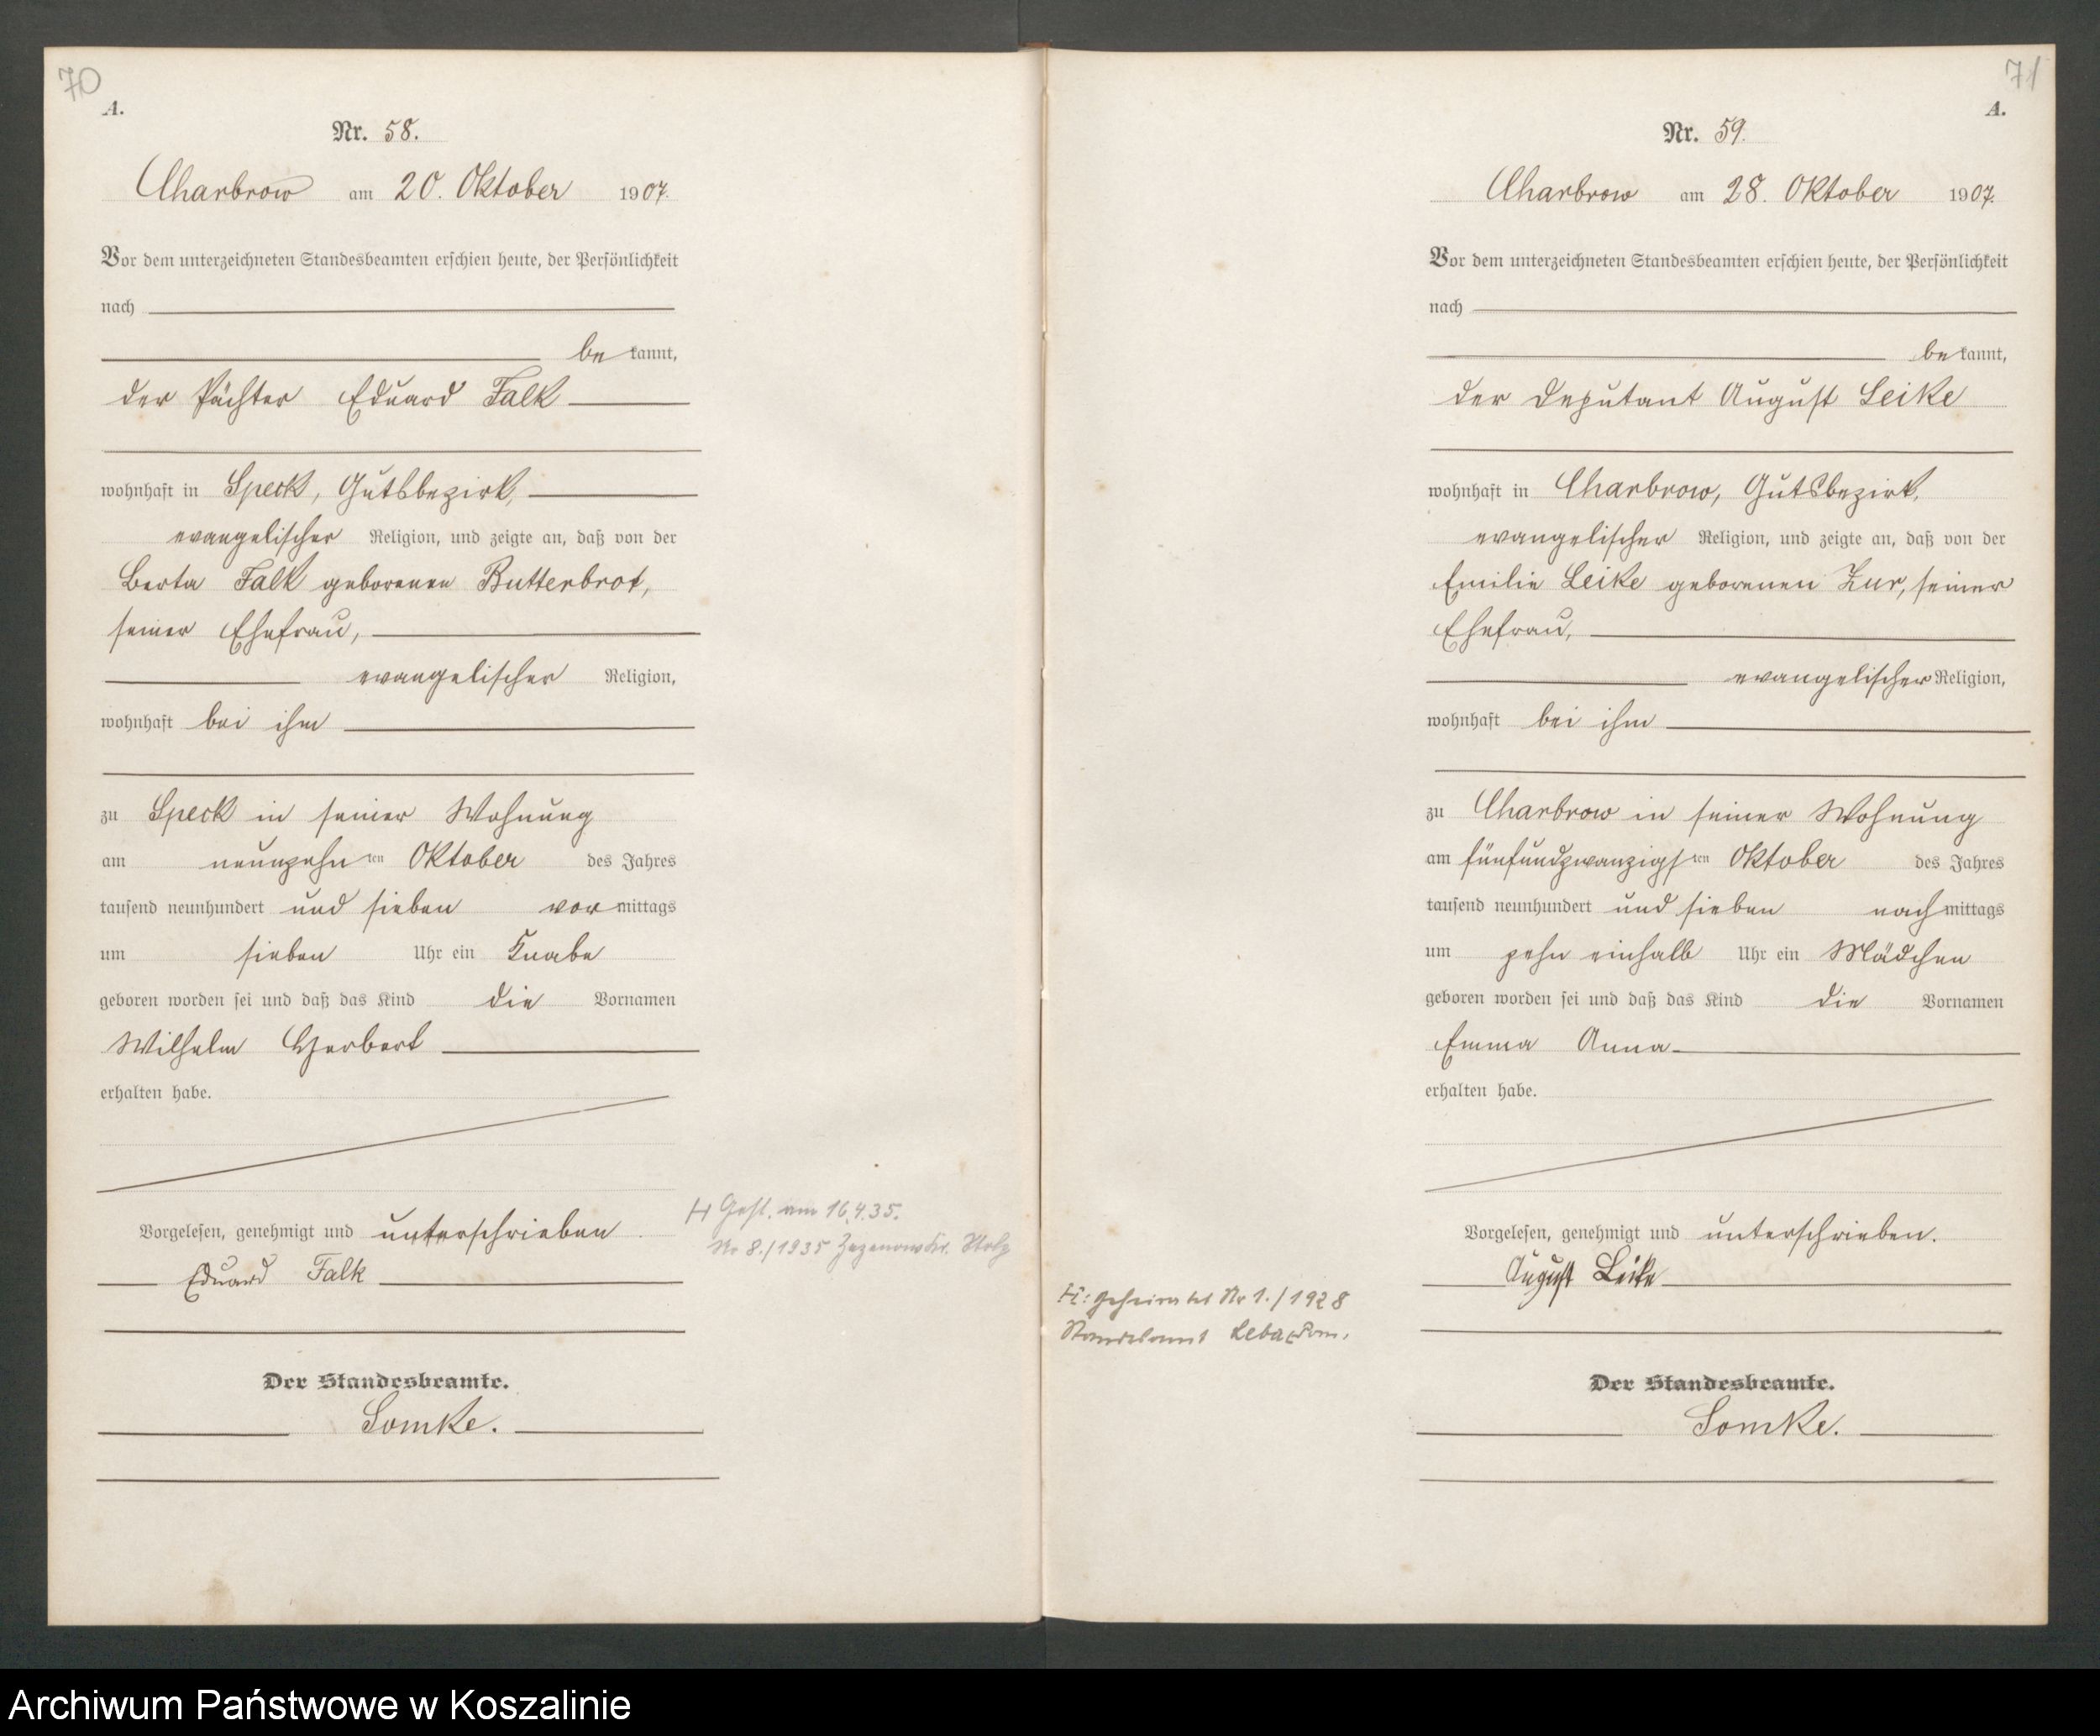 70
A.
Nr. 58.
Charbrow am 20. Oktober 1907.
Vor dem unterzeichneten Standesbeamten erschien heute, der Persönlichkeit
nach
be kannt,
der Pächter Eduard Falk
wohnhaft in Speck, Gutsbezirk,
evangelischer Religion, und zeigte an, daß von der
Berta Falk geborenen Butterbrot,
seiner Ehefrau,
evangelischer Religion,
wohnhaft bei ihm
zu Speck in seiner Wohnung
am neunzehn ten Oktober des Jahres
tausend neunhundert und sieben vor mittags
um sieben Uhr ein Knabe
geboren worden sei und daß das Kind die Vornamen
Wilhelm Herbert
erhalten habe.
Vorgelesen, genehmigt und unterschrieben
Eduard Falk
H Gest. am 16.4.35.
Nr 8./1935 Stolp
Der Standesbeamte.
Lomke.
71
A.
Nr. 59.
Charbrow am 28. Oktober 1907.
Vor dem unterzeichneten Standesbeamten erschien heute, der Persönlichkeit
nach
be kannt,
der Deputant August Leike
wohnhaft in Charbrow, Gutsbezirk,
evangelischer Religion, und zeigte an, daß von der
Emilie Leike geborenen Zur, seiner
Ehefrau,
evangelischer Religion,
wohnhaft bei ihm
zu Charbrow in seiner Wohnung
am fünfundzwanzigs ten Oktober des Jahres
tausend neunhundert und sieben nach mittags
um zehn einhalb Uhr ein Mädchen
geboren worden sei und daß das Kind die Vornamen
Emma Anna
erhalten habe.
Vorgelesen, genehmigt und unterschrieben.
August Leike
H: geheiratet Nr 1./1928
Standesamt Leba, Pom.
Der Standesbeamte.
Lomke.
Archiwum Państwowe w Koszalinie